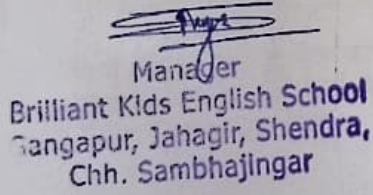 Manager
Brilliant Kids English School
Gangapur, Jahagir, Shendra,
Chh. Sambhajingar